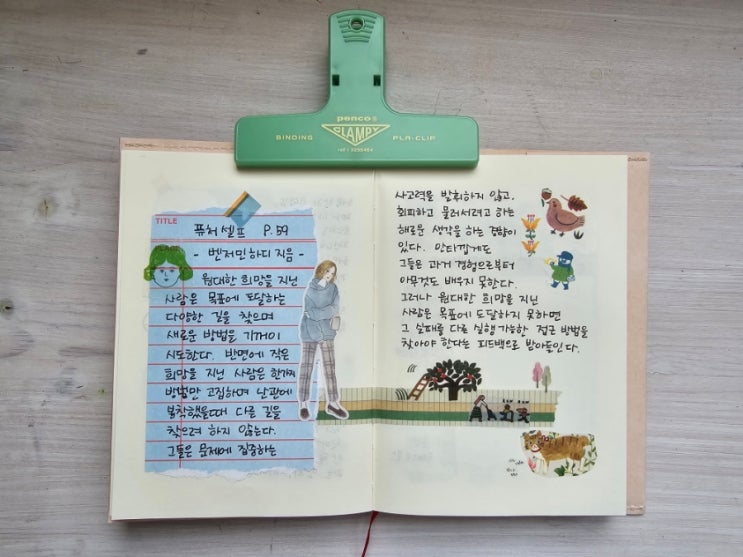 penco®
CLAMPY
BINDING
PLA-CLIP
TITLE
퓨처 셀프 P.59
- 벤저민 하디 지음 -
원대한 희망을 지닌
사람은 목표에 도달하는
다양한 길을 찾으며
새로운 방법을 기꺼이
시도한다. 반면에 작은
희망을 지닌 사람은 한가지
방법만 고집하며 난관에
봉착했을때 다른 길을
찾으려 하지 않는다.
그들은 문제에 집중하는
사고력을 발휘하지 않고,
회피하고 물러서려고 하는
해로운 생각을 하는 경향이
있다. 안타깝게도
그들은 과거 경험으로부터
아무것도 배우지 못한다.
그러나 원대한 희망을 지닌
사람은 목표에 도달하지 못하면
그 실패를 다른 실행 가능한 접근 방법을
찾아야 한다는 피드백으로 받아들인다.